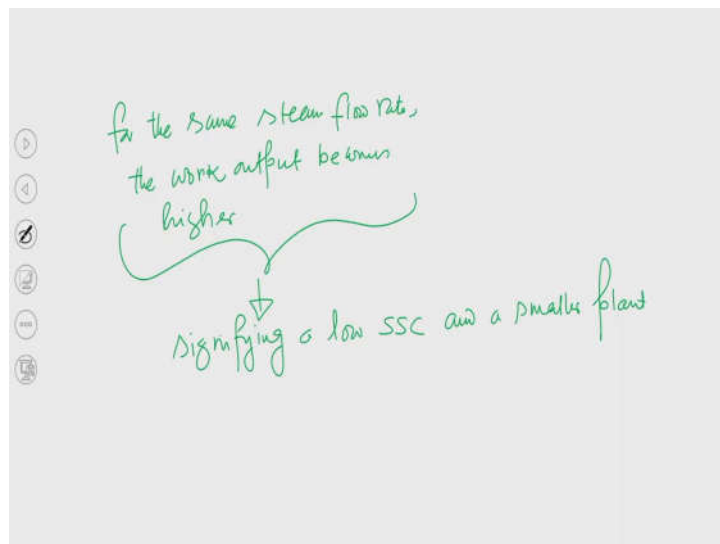 for the same steam flow rate,
the work output becomes
higher
signifying a low SSC and a smaller plant